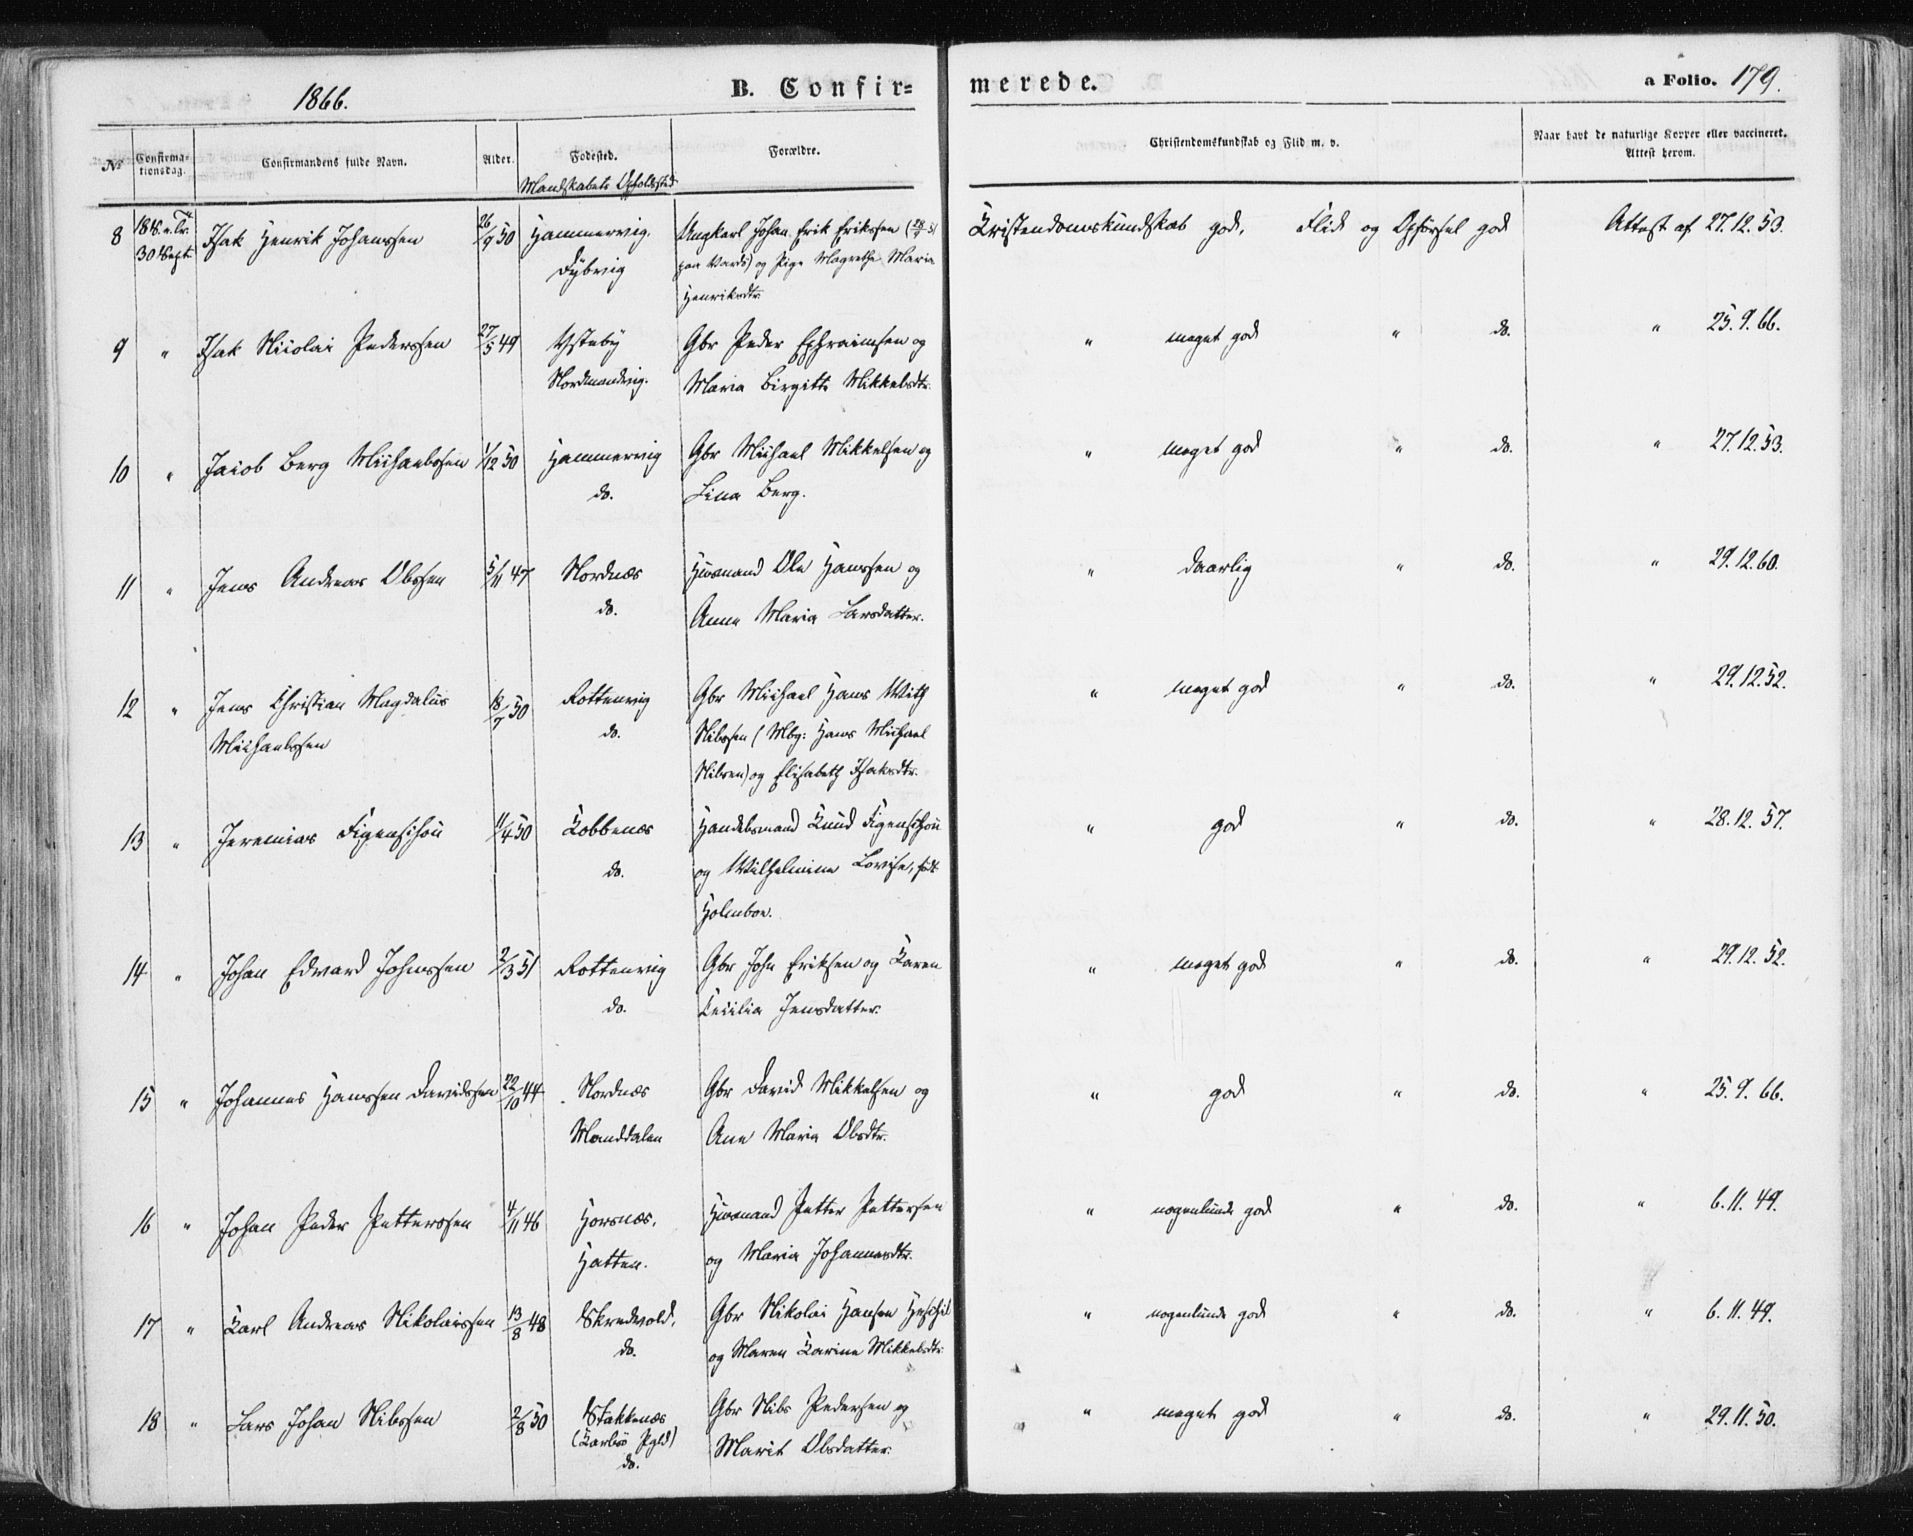 1866.
B. Confir=
merede.
a Folio. 179.
No
Confirma-
tionsdag.
Confirmandens fulde Navn.
Alder.
Fødested.
Mandskabets Opholdssted
Forældre.
Christendomskundskab og Flid m. v.
Naar havt de naturlige Kopper eller vaccineret.
Attest herom.
8 18de S. e. Tr. Isak Henrik Johanssen 26/9 50 Hammervig. Ungkarl Johan Erik Erikssen ( Kristendomskundskab god, Flid og Opførsel god Attest af 27.12.53.
30 Sept. Dybvig paa Vardø) og Pige Magrethe Maria
Henriksdtr.
9 " Isak Nicolai Pederssen 27/5 49 Ysteby Gbr Peder Ephraimsen og " meget god " do. " 25.9.66.
Nordmandvig. Maria Birgitte Mikkelsdtr.
10 " Jacob Berg Michaelssen 1/12 50 Hammervig Gbr Michael Mikkelsen og " meget god " do. " 27.12.53.
do. Lina Berg.
11 " Jens Andreas Olssen 5/11 47 Nordnæs Husmand Ole Hanssen og " daarlig " do. " 29.12.60.
do. Anne Maria Larsdatter.
12 " Jens Christian Magdalus 18/7 50 Rottenvig Gbr Michael Hans With " meget god " do. " 29.12.52.
Michaelssen do. Nilssen (Mbg: Hans Michael
Nilsen) og Elisabeth Isaksdtr.
13 " Jeremias Figenschou 11/4 50 Kobbenæs Handelsmand Knud Figenschou " god " do. " 28.12.57.
do. og Wilhelmine Lovise, født
Holmboe.
14 " Johan Edvard Johnssen 2/3 51 Rottenvig Gbr John Eriksen og Karen " meget god " do. " 29.12.52.
do. Cecilia Jensdatter.
15 " Johannes Hanssen Davidssen 22/10 44 Nordnæs Gbr David Mikkelsen og " god " do. " 25.9.66.
Manddalen Ane Maria Olsdtr.
16 " Johan Peder Petterssen 4/11 46 Horsnæs, Husmand Petter Pettersen " nogenlunde god " do. " 6.11.49.
Hatten. og Maria Johannesdtr.
17 " Karl Andreas Nikolaissen 13/8 48 Skredvold, Gbr Nikolai Hansen " nogenlunde god " do. " 6.11.49.
do. og Maren Karine Mikkelsdtr.
18 " Lars Johan Nilssen 2/8 50 Stakkenæs Gbr Nils Pedersen og " meget god " do. " 29.11.50.
(Karlsø Pgld) Marit Olsdatter.
do.